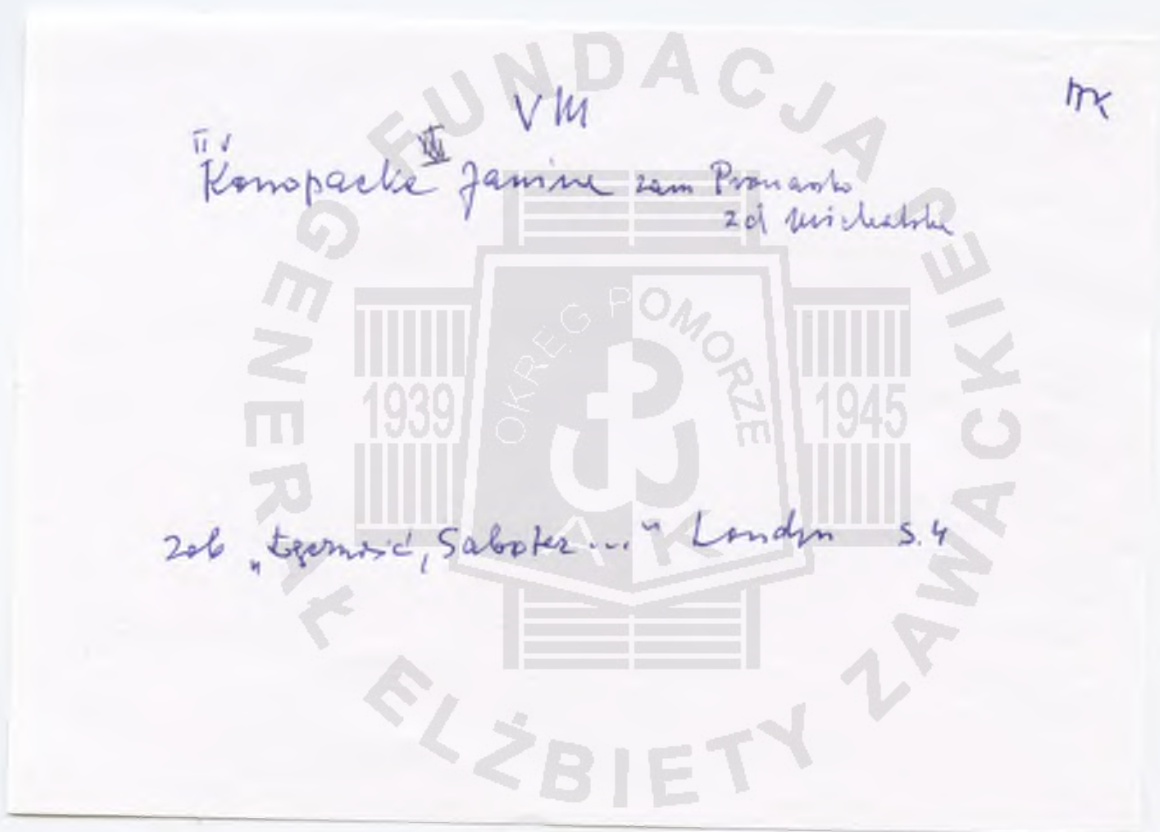 VIII
MK
II v
Konopacka Janina zam Pronaszko
zd Michalska
zob „Łączność, Sabotaż..." Londyn s. 4
FUNDACJA
GENERAŁ ELŻBIETY ZAWACKIEJ
OKRĘG POMORZE
1939
1945
AK